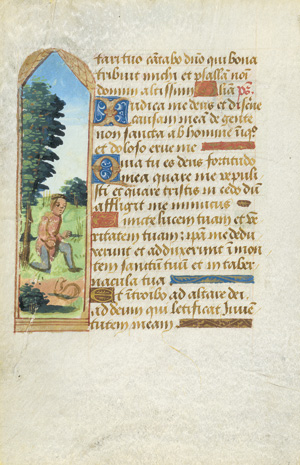 tari tuo cantabo dno qui bona
tribuit michi et psallam noī
domini altissimi Alia ps̄
Iudica me deus et discerne
causam meam de gente
non sancta ab homine iniq̄
et doloso erue me
Quia tu es deus fortitudo
mea quare me repuli
sti et quare tristis incedo dum
affligit me inimicus
Emitte lucem tuam et ve
ritatem tuam: ipsa me dedu
xerunt et adduxerunt in mon
tem sanctum tuum et in taber
nacula tua
Et introibo ad altare dei
ad deum qui letificat Iuven
tutem meam